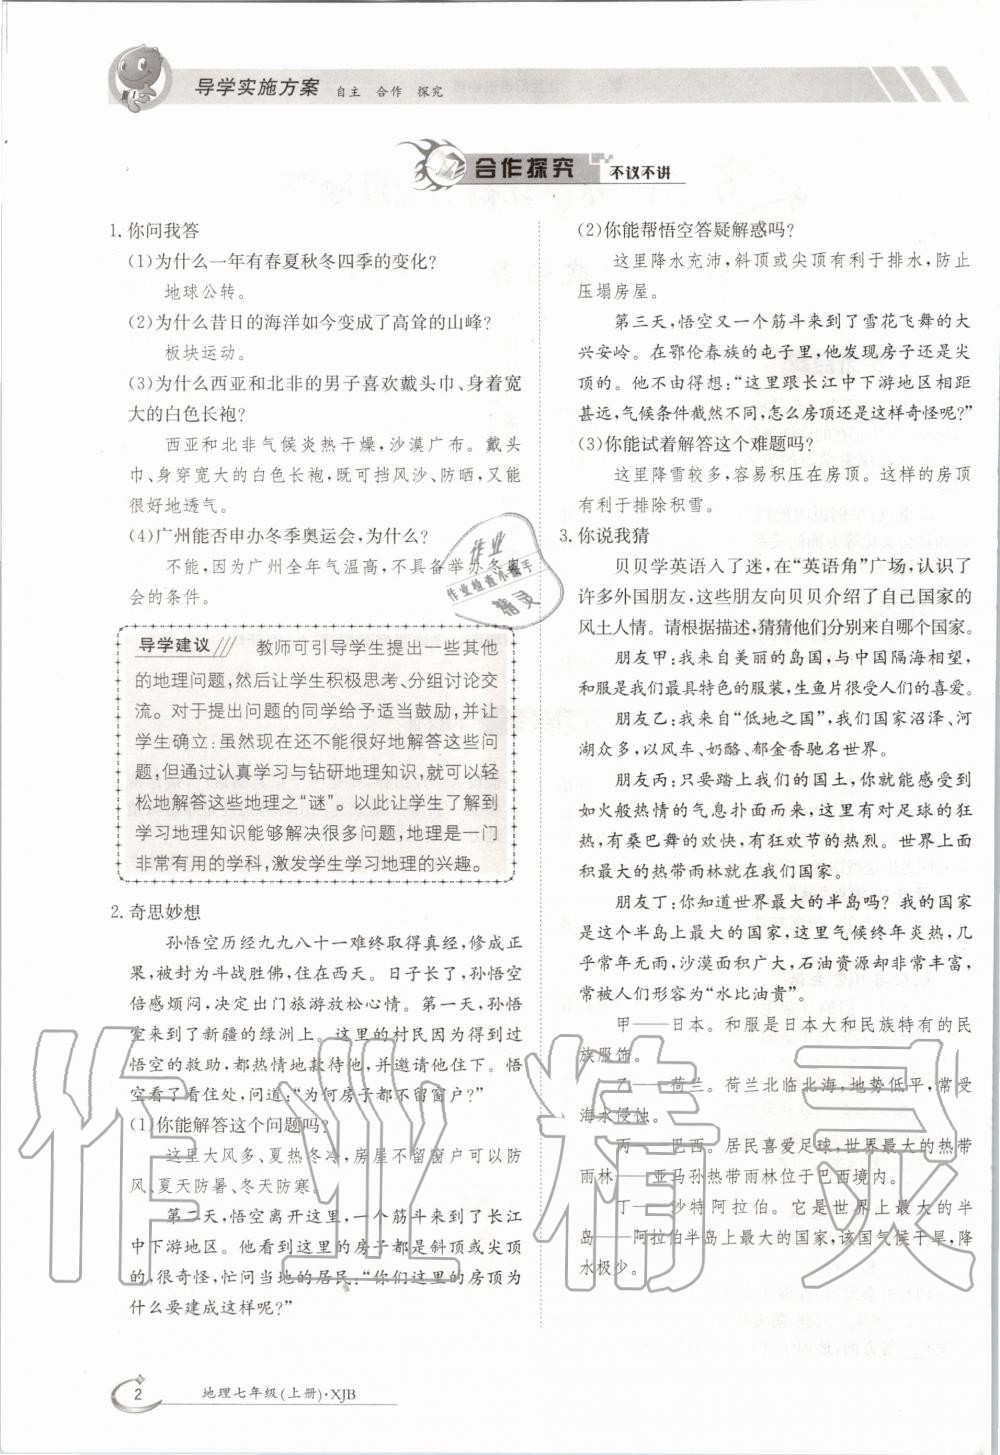 导学实施方案 自主 合作 探究
合作探究 不议不讲
1. 你问我答
(1)为什么一年有春夏秋冬四季的变化?
地球公转。
(2)为什么昔日的海洋如今变成了高耸的山峰?
板块运动。
(3)为什么西亚和北非的男子喜欢戴头巾、身着宽
大的白色长袍?
西亚和北非气候炎热干燥,沙漠广布。戴头
巾、身穿宽大的白色长袍,既可挡风沙、防晒,又能
很好地透气。
(4)广州能否申办冬季奥运会,为什么?
不能,因为广州全年气温高,不具备举办冬奥
会的条件。
导学建议 教师可引导学生提出一些其他
的地理问题,然后让学生积极思考、分组讨论交
流。对于提出问题的同学给予适当鼓励,并让
学生确立:虽然现在还不能很好地解答这些问
题,但通过认真学习与钻研地理知识,就可以轻
松地解答这些地理之“谜”。以此让学生了解到
学习地理知识能够解决很多问题,地理是一门
非常有用的学科,激发学生学习地理的兴趣。
2. 奇思妙想
孙悟空历经九九八十一难终取得真经,修成正
果,被封为斗战胜佛,住在西天。日子长了,孙悟空
倍感烦闷,决定出门旅游放松心情。第一天,孙悟
空来到了新疆的绿洲上。这里的村民因为得到过
悟空的救助,都热情地款待他,并邀请他住下。悟
空看了看住处,问道:“为何房子都不留窗户?”
(1)你能解答这个问题吗?
这里大风多、夏热冬冷,房屋不留窗户可以防
风、夏天防暑、冬天防寒。
第二天,悟空离开这里,一个筋斗来到了长江
中下游地区。他看到这里的房子都是斜顶或尖顶
的,很奇怪,忙问当地的居民:“你们这里的房顶为
什么要建成这样呢?”
(2)你能帮悟空答疑解惑吗?
这里降水充沛,斜顶或尖顶有利于排水,防止
压塌房屋。
第三天,悟空又一个筋斗来到了雪花飞舞的大
兴安岭。在鄂伦春族的屯子里,他发现房子还是尖
顶的。他不由得想:“这里跟长江中下游地区相距
甚远,气候条件截然不同,怎么房顶还是这样奇怪呢?”
(3)你能试着解答这个难题吗?
这里降雪较多,容易积压在房顶。这样的房顶
有利于排除积雪。
3. 你说我猜
贝贝学英语入了迷,在“英语角”广场,认识了
许多外国朋友,这些朋友向贝贝介绍了自己国家的
风土人情。请根据描述,猜猜他们分别来自哪个国家。
朋友甲:我来自美丽的岛国,与中国隔海相望,
和服是我们最具特色的服装,生鱼片很受人们的喜爱。
朋友乙:我来自“低地之国”,我们国家沼泽、河
湖众多,以风车、奶酪、郁金香驰名世界。
朋友丙:只要踏上我们的国土,你就能感受到
如火般热情的气息扑面而来,这里有对足球的狂
热,有桑巴舞的欢快,有狂欢节的热烈。世界上面
积最大的热带雨林就在我们国家。
朋友丁:你知道世界最大的半岛吗?我的国家
是这个半岛上最大的国家,这里气候终年炎热,几
乎常年无雨,沙漠面积广大,石油资源却非常丰富,
常被人们形容为“水比油贵”。
甲——日本。和服是日本大和民族特有的民
族服饰。
乙——荷兰。荷兰北临北海,地势低平,常受
海水侵蚀。
丙——巴西。居民喜爱足球,世界最大的热带
雨林——亚马孙热带雨林位于巴西境内。
丁——沙特阿拉伯。它是世界上最大的半
岛——阿拉伯半岛上最大的国家,该国气候干旱,降
水极少。
作业
作业检查小帮手
精灵
作业精灵
2 地理七年级(上册)·XJB